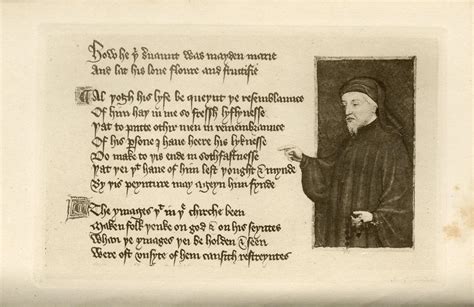 How he yͤ seruaunt was mayden marie
And lat his loue floure and fructifie
Al yogh his lyfe be queynt ye resemblaunce
Of him hay in me so fressh lyflynesse
Yat to putte othir men in remembraunce
Of his psone I haue heere his lyknesse
Do make to yis ende in sothfastnesse
Yat yei yͭ haue of him left yought & mynde
By yis peynture may ageyn him fynde
The ymages yͭ in yͤ chirche been
Maken folk yenke on god & on his seyntes
Whan ye ymages yei be holden & seen
Were oft vnsyte of hem causith restreyntes